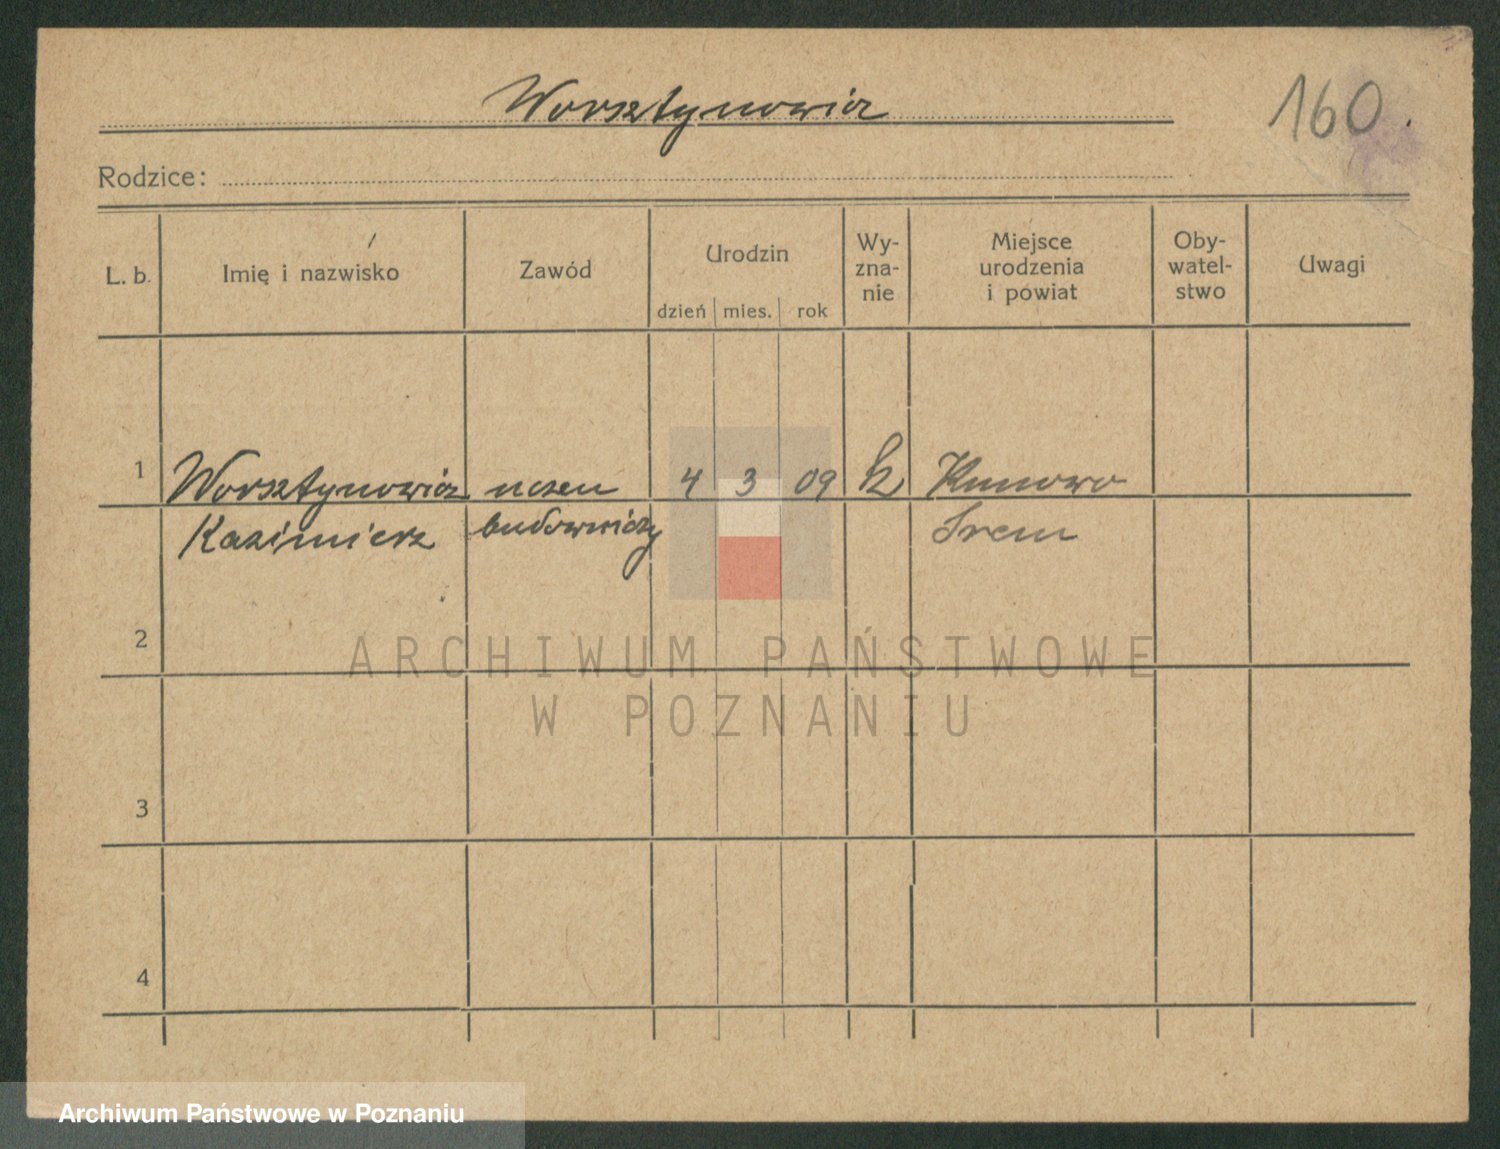 Worsztynowicz
160.
Rodzice:
L. b.
Imię i nazwisko
Zawód
Urodzin
dzień mies. rok
Wy-
zna-
nie
Miejsce
urodzenia
i powiat
Oby-
watel-
stwo
Uwagi
1 Worsztynowicz uczeń 4 3 09 k Kunowo
Kazimierz budowniczy Śrem
2
ARCHIWUM PAŃSTWOWE
W POZNANIU
3
4
Archiwum Państwowe w Poznaniu